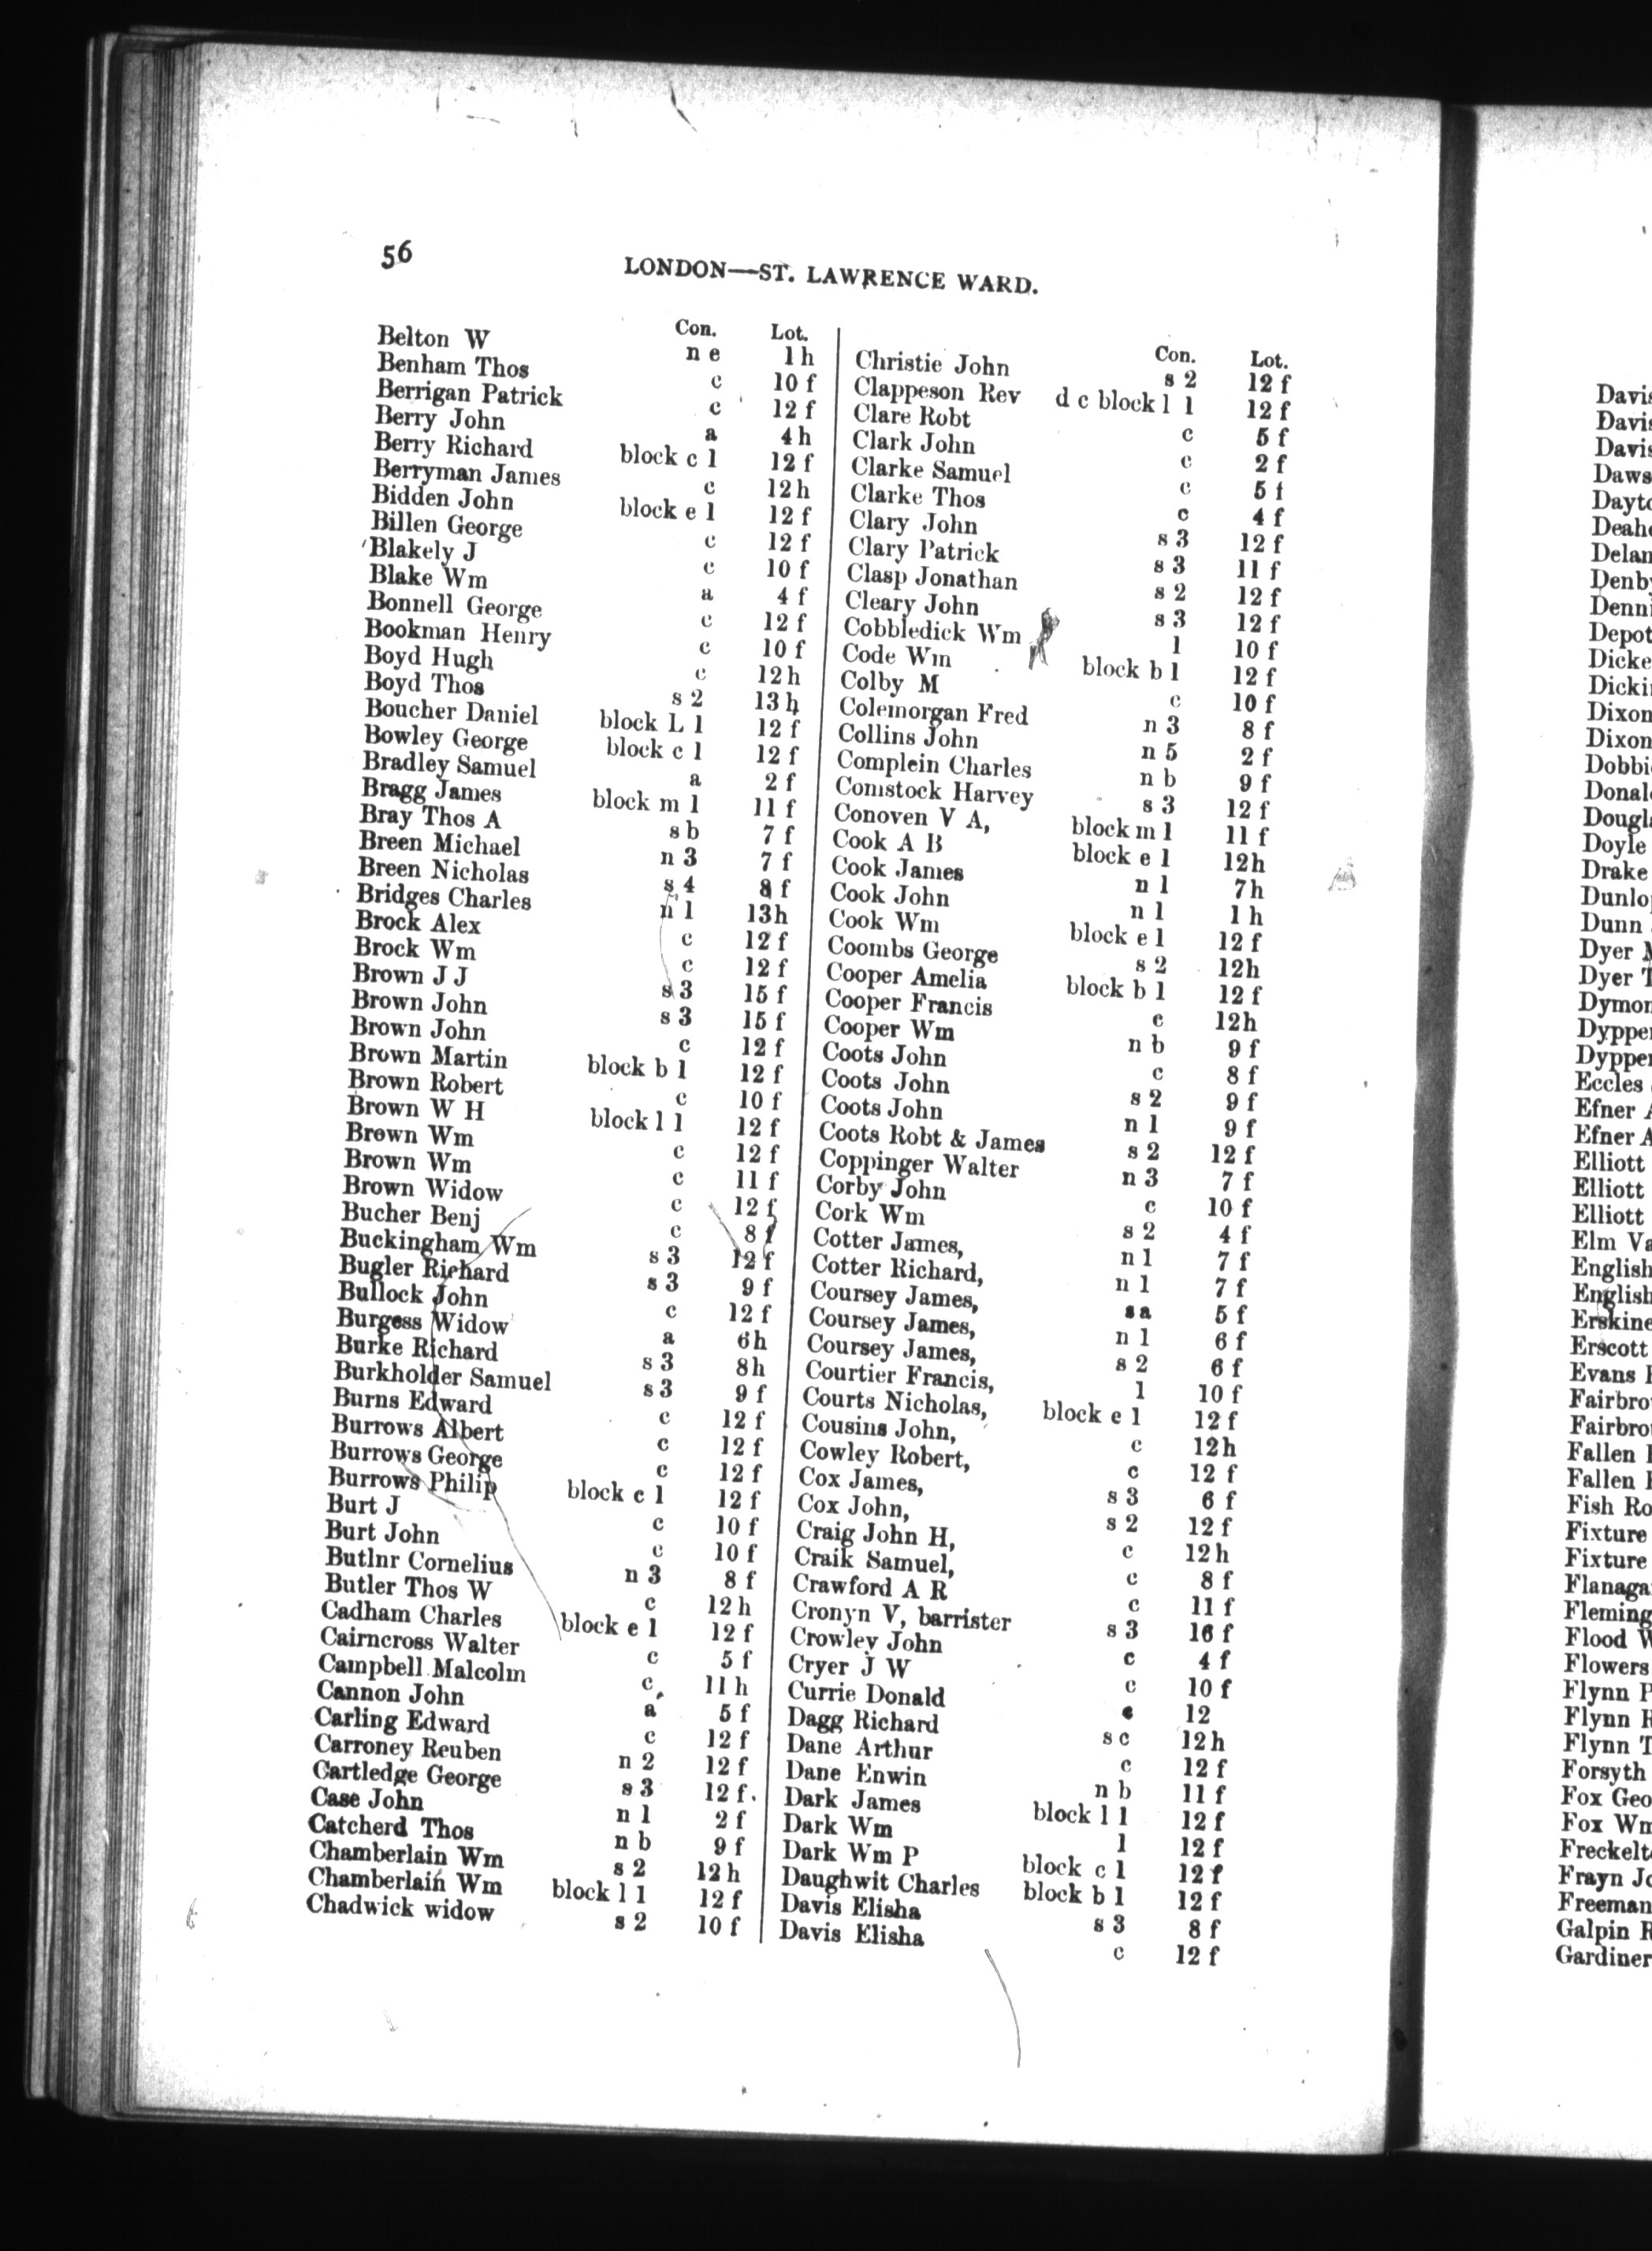 56
LONDON—ST. LAWRENCE WARD.
Con. Lot.
Belton W n e 1 h
Benham Thos c 10 f
Berrigan Patrick c 12 f
Berry John a 4 h
Berry Richard block c 1 12 f
Berryman James c 12 h
Bidden John block e 1 12 f
Billen George c 12 f
Blakely J c 10 f
Blake Wm a 4 f
Bonnell George c 12 f
Bookman Henry c 10 f
Boyd Hugh c 12 h
Boyd Thos s 2 13 h
Boucher Daniel block L 1 12 f
Bowley George block c 1 12 f
Bradley Samuel a 2 f
Bragg James block m 1 11 f
Bray Thos A s b 7 f
Breen Michael n 3 7 f
Breen Nicholas s 4 8 f
Bridges Charles n 1 13h
Brock Alex c 12 f
Brock Wm c 12 f
Brown J J s 3 15 f
Brown John s 3 15 f
Brown John c 12 f
Brown Martin block b 1 12 f
Brown Robert c 10 f
Brown W H block l 1 12 f
Brown Wm c 12 f
Brown Wm c 11 f
Brown Widow c 12 f
Bucher Benj c 8 f
Buckingham Wm s 3 12 f
Bugler Richard s 3 9 f
Bullock John c 12 f
Burgess Widow a 6 h
Burke Richard s 3 8h
Burkholder Samuel s 3 9 f
Burns Edward c 12 f
Burrows Albert c 12 f
Burrows George c 12 f
Burrows Philip block c 1 12 f
Burt J c 10 f
Burt John c 10 f
Butlnr Cornelius n 3 8 f
Butler Thos W c 12 h
Cadham Charles block e 1 12 f
Cairncross Walter c 5 f
Campbell Malcolm c 11 h
Cannon John a 5 f
Carling Edward c 12 f
Carroney Reuben n 2 12 f
Cartledge George s 3 12 f.
Case John n 1 2 f
Catcherd Thos n b 9 f
Chamberlain Wm s 2 12 h
Chamberlain Wm block l 1 12 f
Chadwick widow s 2 10 f
Con. Lot.
Christie John s 2 12 f
Clappeson Rev d c block l 1 12 f
Clare Robt c 5 f
Clark John c 2 f
Clarke Samuel c 5 f
Clarke Thos c 4 f
Clary John s 3 12 f
Clary Patrick s 3 11 f
Clasp Jonathan s 2 12 f
Cleary John s 3 12 f
Cobbledick Wm 1 10 f
Code Wm block b 1 12 f
Colby M c 10 f
Colemorgan Fred n 3 8 f
Collins John n 5 2 f
Complein Charles n b 9 f
Comstock Harvey s 3 12 f
Conoven V A, block m 1 11 f
Cook A B block e 1 12h
Cook James n 1 7 h
Cook John n 1 1 h
Cook Wm block e 1 12 f
Coombs George s 2 12h
Cooper Amelia block b 1 12 f
Cooper Francis c 12h
Cooper Wm n b 9 f
Coots John c 8 f
Coots John s 2 9 f
Coots John n 1 9 f
Coots Robt & James s 2 12 f
Coppinger Walter n 3 7 f
Corby John c 10 f
Cork Wm s 2 4 f
Cotter James, n 1 7 f
Cotter Richard, n 1 7 f
Coursey James, s a 5 f
Coursey James, n 1 6 f
Coursey James, s 2 6 f
Courtier Francis, 1 10 f
Courts Nicholas, block e 1 12 f
Cousins John, c 12h
Cowley Robert, c 12 f
Cox James, s 3 6 f
Cox John, s 2 12 f
Craig John H, c 12h
Craik Samuel, c 8 f
Crawford A R c 11 f
Cronyn V, barrister s 3 16 f
Crowley John c 4 f
Cryer J W c 10 f
Currie Donald c 12
Dagg Richard s c 12h
Dane Arthur c 12 f
Dane Enwin n b 11 f
Dark James block l 1 12 f
Dark Wm 1 12 f
Dark Wm P block c 1 12 f
Daughwit Charles block b 1 12 f
Davis Elisha s 3 8 f
Davis Elisha c 12 f
Dunn
Dyer
Dyer
Eccles
Efner
Efner A
Elliott
Elliott
Elliott
English
English
Evans
Fallen
Fallen
Fish Ro
Fixture
Fixture
Flood W
Flowers
Flynn P
Flynn
Flynn T
Forsyth
Fox Geo
Fox Wm
Freeman
Galpin
Gardiner